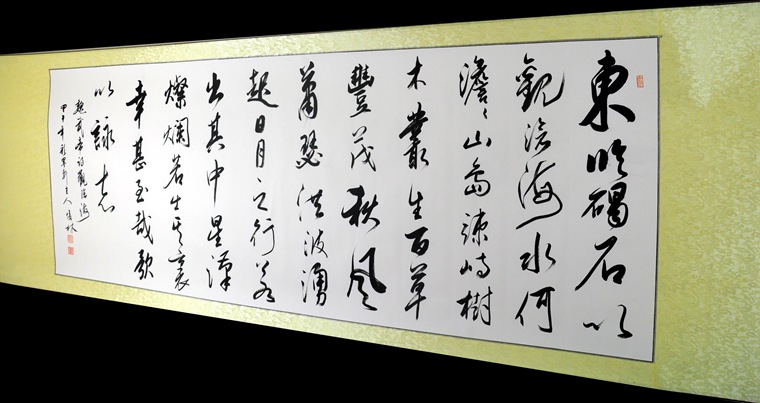 東臨碣石以
觀滄海水何
澹〻山島竦峙樹
木叢生百草
豐茂秋風
蕭瑟洪波湧
起日月之行若
出其中星漢
燦爛若出其裏
幸甚至哉歌
以詠志
魏武帝詩觀滄海
甲午年 主人